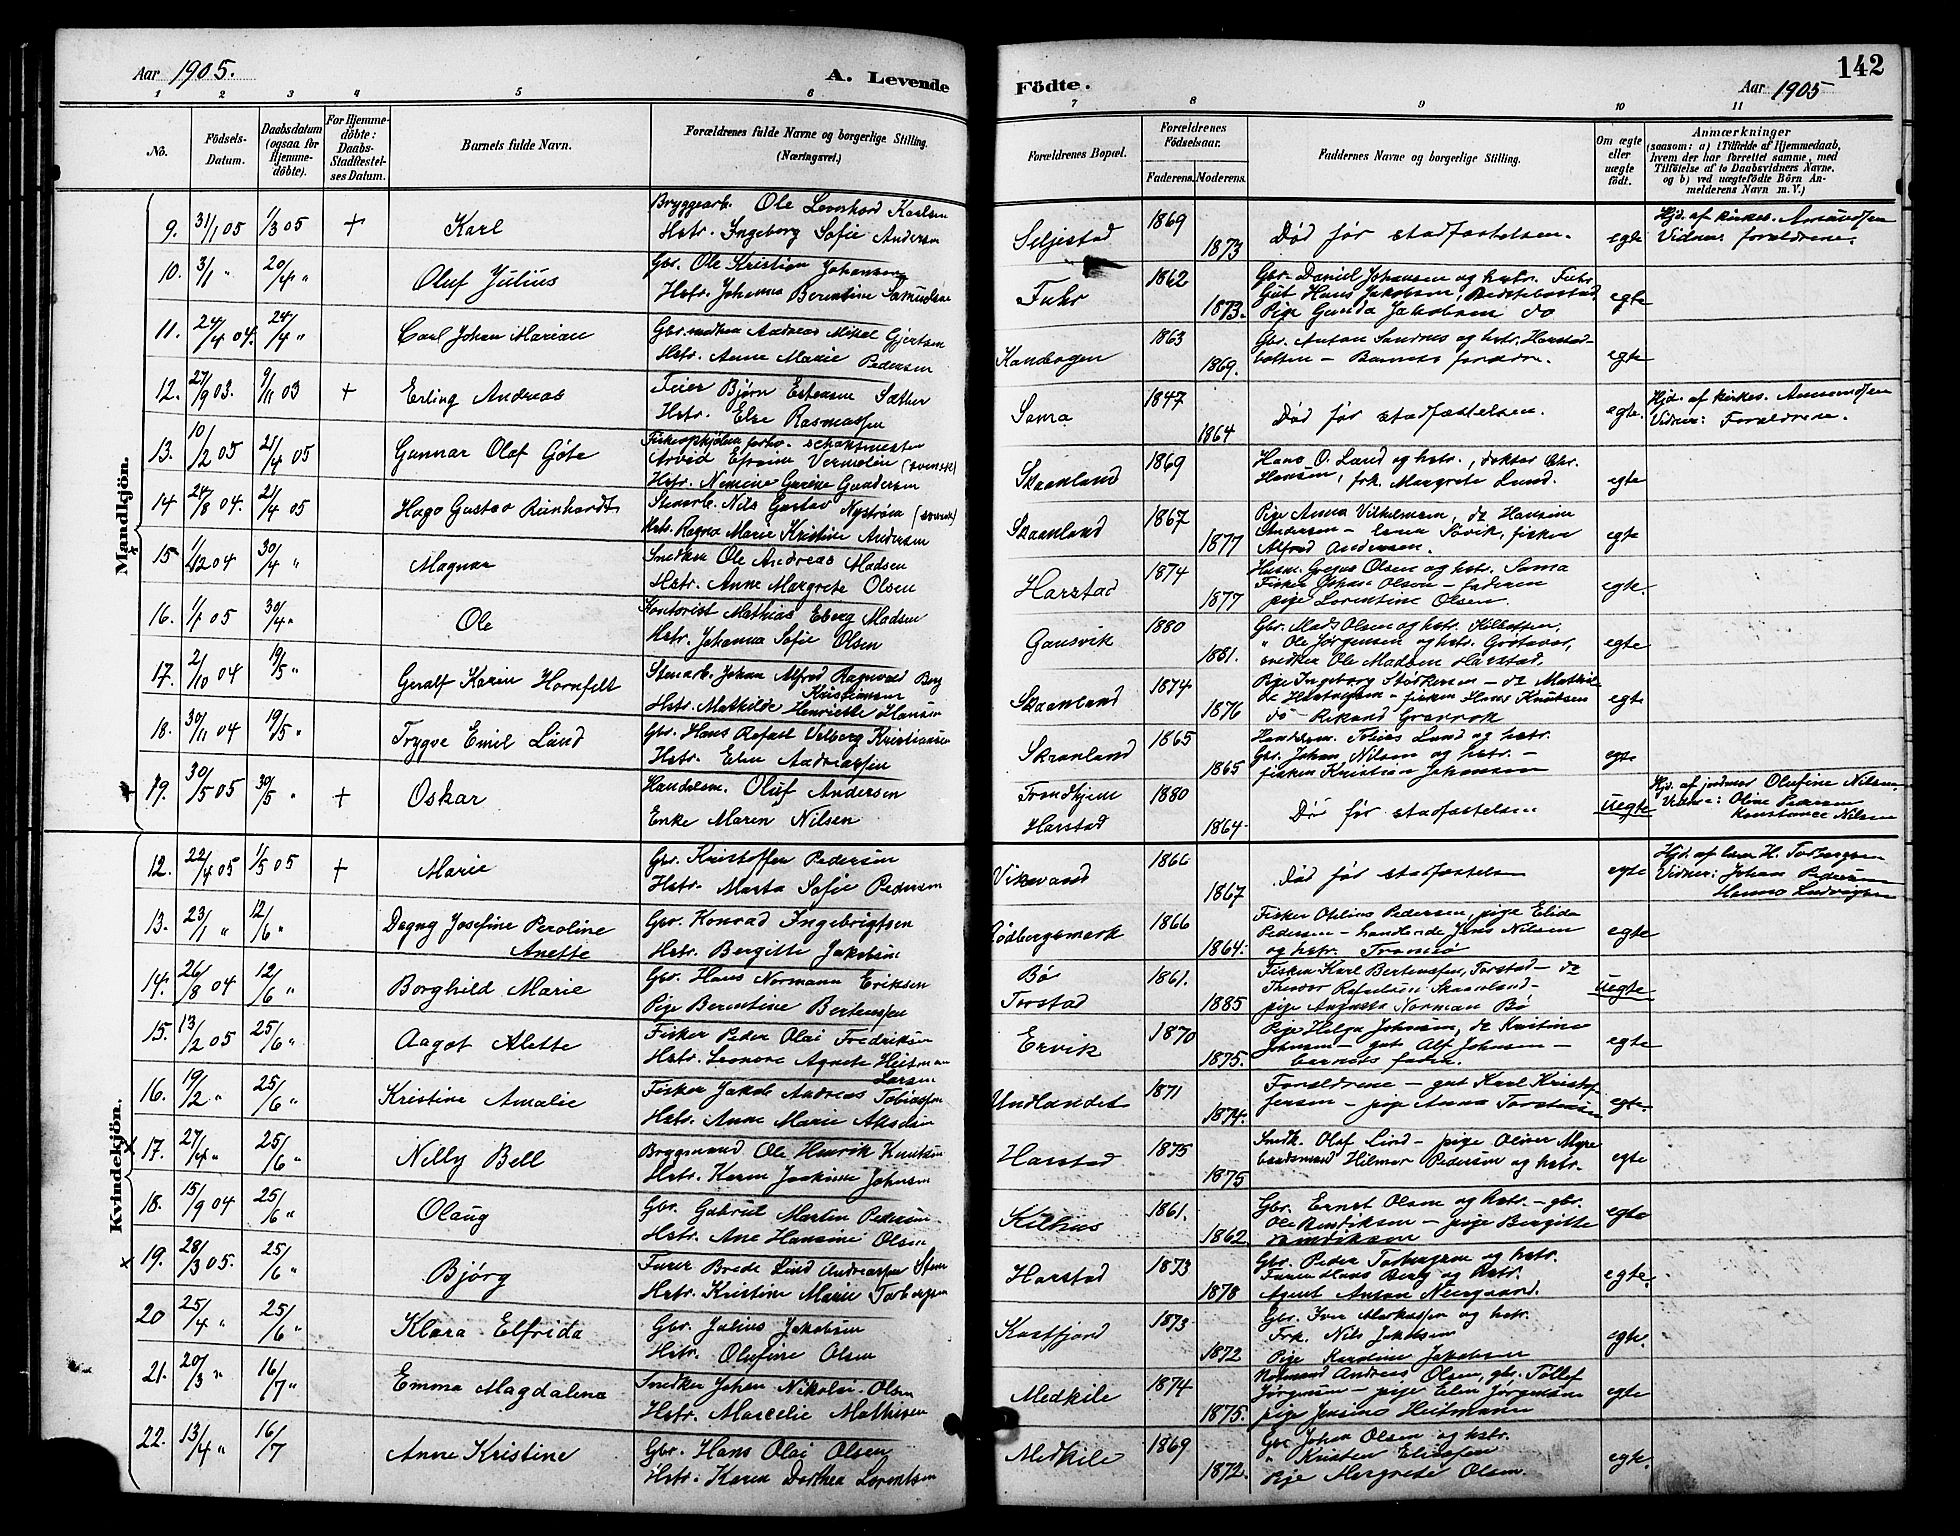 Aar 1905.
A. Levende
Födte.
Aar 1905
142
1 2 3 4 5 6 7 8 9 10 11
No.
Födsels-Datum.
Daabsdatum (ogsaa for Hjemmedöbte).
For Hjemmedöbte: Daabs-Stadfæstelses Datum.
Barnets fulde Navn.
Forældrenes fulde Navne og borgerlige Stilling. (Næringsvei.)
Forældrenes Bopæl.
Forældrenes Födselsaar.
Faderens. Moderens.
Faddernes Navne og borgerlige Stilling.
Om ægte eller uægte födt.
Anmærkninger (saasom: a) i Tilfælde af Hjemmedaab, hvem der har forrettet samme, med Tilföielse af to Daabsvidners Navne, og b) ved uægtefödte Börn Anmelderens Navn m. V.)
Mandkjön.
9. 31/1 05 1/3 05 + Karl
Bryggearb. Ole Karlsen
Hstr. Ingeborg Sofie Andersen
Seljestad 1869 1873 Død før stadfæstelsen. egte
Hjd. af kirkes. Amundsen
Vidner forældrene.
10. 3/1 " 20/4 " Oluf Julius
Gbr. Ole Kristian Johansen
Hstr. Johanna Berentine Samuelsen
Fuhr 1862 1873. Gbr. Daniel Johansen og hstr. Fuhr
Gut Hans Jakobsen,
Pige Gunda Jakobsen do egte
11. 24/4 04. 24/4 " Carl Johan Marian
Gbr. Andreas Mikal Gjertsen
Hstr. Anne Marie Pedersen
Kanebogen 1863 1869. Gbr. Anton Sandnes og hstr. Harstad-
botten – Barnets forældre. egte
12. 27/9 03. 9/11 03 + Erling Andreas
Feier Bjørn Estensen Sæther
Hstr. Else Rasmussen
Sama 1847 1864 Død før stadfæstelsen. egte.
Hjd. af kirkes. Amundsen
Vidner: Forældrene.
13. 10/2 05 21/4 05 Gunnar Olaf Gøte
Arvid Efraim Vermelin (svensk)
Hstr. Nemine Gurine Gundersen
Skaanland 1869 Hans O. Lund og hstr., doktor Chr.
Hansen, frk. Margrete Lund. egte
14 24/8 04. 21/4 05 Hugo Gustav Reinhardt
Stenarb. Nils Gustav Nystrøm (svensk)
Hstr. Ragna Marie Kristine Andersen
Skaanland 1867 1877 Pige Anna Vilhelmsen, do Hansine
Andersen – Søvik, fisker
Alfred Andersen. egte
15. 1/12 04 30/4 " Magnar
Snedker Ole Andreas Madsen
Hstr. Anne Margrete Olsen
Harstad 1874 1877 Olsen og hstr. Sama
Fisker Johan Olsen – faderen
pige Lorentine Olsen. egte.
16. 1/1 05 30/4 " Ole
Kontorist Mathias Eberg Madsen
Hstr. Johanna Sofie Olsen
Gansvik 1880 1881. Gbr. Mads Olsen og hstr. Kilbotten,
" Ole Jørgensen og hstr. Grøtavær,
snedker Ole Madsen Harstad. egte
17. 2/10 04 19/5 " Geralf Karin Hornfelt
Stenarb. Johan Alfred Ragnvald Berg
Kristiansen
Hstr. Mathilde Henriette Hansen
Skaanland 1874 1876 Pige Ingeborg – do Mathil-
de – fisker Hans Knutsen
do – Rikard egte
18. 30/11 04 19/5 " Trygve Emil Lund
Gbr. Hans Rafael Vilberg Kristiansen
Hstr. Elen Andreassen
Skaanland 1865 1865 Handelsm. Tobias Lund og hstr.
Gbr. Johan Nilsen og hstr. –
fisker Kristian Johansen egte
19. 30/5 05 30/5 " + Oskar
Handelsm. Oluf Andersen
Enke Maren Nilsen
Trondhjem
Harstad 1880 1864. Død før stadfæstelsen uegte
Hjd. af jordmor Olufine Nilsen.
Vidner: Oline Pedersen
Konstance Nilsen
Kvindekjön.
12. 22/4 05 1/5 05 + Marie
Gbr. Kristoffer Pedersen
Hstr. Marta Sofie Pedersen
Vikevand 1866 1867 Død før stadfæstelsen egte
Hjd. af H. Torbergsen
Vidner: Johan Pedersen
Hanna Ludvigsen
13. 23/1 " 12/6 " Dagny Josefine Peroline
Anette
Gbr. Konrad Ingebrigtsen
Hstr. Bergitte Jakobsen
Rødbergsmark 1866 1864. Fisker Otelius Pedersen, pige Elida
Pedersen – handlende Jens Nilsen
og hstr. Tromsø egte
14. 26/8 04 12/6 " Borghild Marie
Gbr. Hans Normann Eriksen
Pige Berentine Bertenssen
Bø
Torstad 1861. 1885 Fisker Karl Bertenssen, Torstad – do
Theodor Skaanland –
pige Augusta Norman Bø uegte
15. 13/2 05 25/6 " Aagot Alette
Fisker Peder Olai Fredriksen
Hstr. Leonore Agnete Heitmann
Larsen
Ervik 1870 1875. Pige Helga Johnsen, do Kristine
Johnsen – gut Alf Johnsen –
barnets fader. egte
16. 19/2 " 25/6 " Kristine Amalie
Fisker Jakob Andreas Tobiassen
Hstr. Anne Marie
Undlandet 1871 1874. Forældrene – gut Karl Kristof-
fersen – pige Anna Torstensen egte.
17. 27/4 " 25/6 " Nelly Bell
Bryggmand Ole Henrik Knutsen
Hstr. Karen Joakime Johnsen
Harstad 1875 1875 Snedk. Olaf Lind – pige Oliver Myre
baadsmand Hilmar Pedersen og hstr. egte
18. 15/9 04 25/6 " Olaug
Gbr. Gabriel Martin Pedersen
Hstr. Ane Hansine Olsen
Kilhus 1861. 1862 Gbr. Ernst Olsen og hstr. – gbr.
Ole Bendiksen – pige Bergitte
Bendiksen egte
19. 28/3 05. 25/6 " Bjørg
Furer Brede Lind Andreassen Steen
Hstr. Kristine Marie Torbergsen
Harstad 1873 1878 Gbr. Peder Torbergsen og hstr.
Furer Hans Berg og hstr.
Agent Anton Neergaard. egte.
20 25/4 " 25/6 " Klara Elfrida
Gbr. Julius Jakobsen
Hstr. Olufine Olsen
Kasfjord 1873 1872 Gbr. Iver Markussen og hstr.
Nils Jakobsen
Pige Karoline Jakobsen egte.
21. 20/3 " 16/7 " Emma Magdalena
Snedker Johan Nikolai Olsen
Hstr. Marcelie Mathisen
Medkile 1874 1875. Andreas Olsen, gbr. Tollef
Jørgensen – pige Elen Jørgensen
pige Jensine Heitmann egte
22. 13/4 " 16/7 Anne Kristine
Gbr. Hans Olai Olsen
Hstr. Karen Dorthea Lorentsen
Medkile 1869 1872. Gbr Johan Olsen og hstr.
" Kristen Eliassen
Pige Mergrete Olsen. egte.